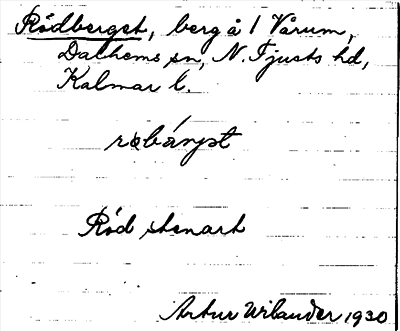 Rödberget, berg å 1 Vårum,
Dalhems sn, N. Tjusts hd,
Kalmar l.
Röd stenart
Artur Wilander 1930